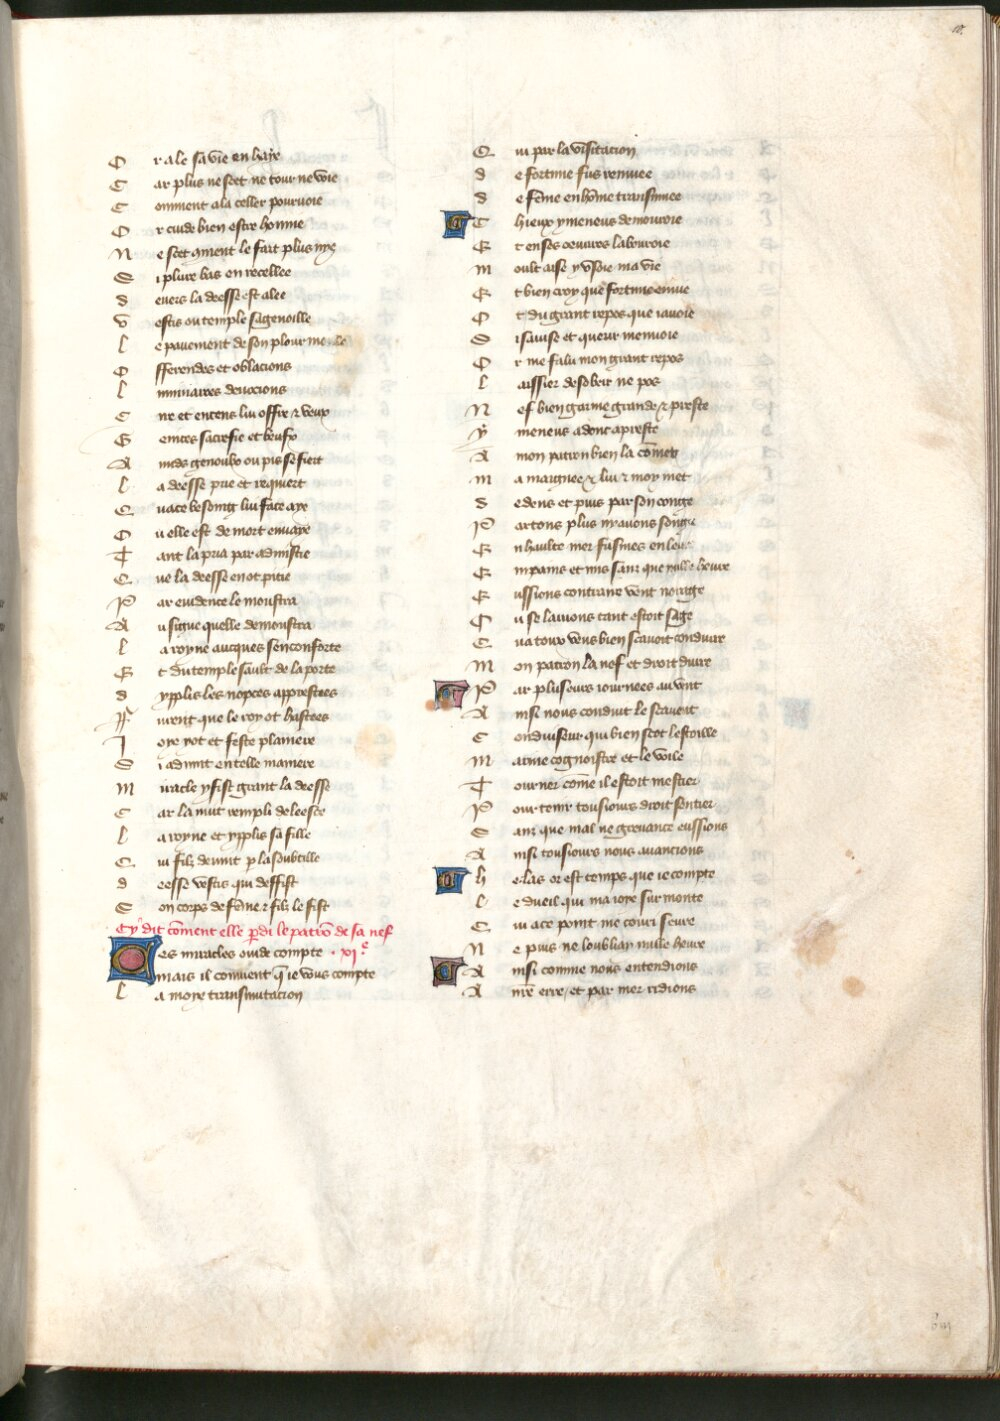 10.
Or a le sa vie en hayr
Car plus ne scet ne tour ne voie
Comment a la celler pourvoie
Or cuide bien estre honnie
Ne scet 9ment le fait plus nye
Si pleure bas en recellee
devers la deesse est alee
vestis ou temple sagenoille
le pavement de son plour moille
Offerendes et oblacions
luminaires devocions
Cire et encens lui offre & veux
Genices sacrefie et beufx
A nudz genoulx ou pis se fiert
la deesse prie et requiert
Qu a ce besoing lui face aye
Ou elle est de mort envaye
Tant la pria par admistie
Que la deesse en ot pitie
Par evidence le monstra
Au signe quelle demonstra
la royne aucques sen conforte
Et du temple sault de la porte
d yplis les nopces apprestees
Furent que le roy ot hastees
Joye y ot et feste planiere
Si advint en telle maniere
Miracle y fist grant la deesse
Car la nuit rempli de leesce
la royne et yplis sa fille
Qui filz devint p la soubtille
deesse vestis qui deffist
Son corps de feme & filz le fist
Cy dit coment elle pdi le patro de sa nef
Des miracles ovide compte . xi e
mais il convient q ie vous compte
la moye transmutacion
Qui par la visitacion
de fortune fus remuee
de feme en home transmuee
Chieux ymeneus demouroie
Et en ses oeuvres labouroie
moult aise y usoie ma vie
Et bien croy que fortune envie
Ot du grant repos que iavoie
Si saise et queur men uoie
Or me falu mon grant repos
laissier desobeir ne pos
Nef bien garnie grande & preste
ymeneus a donc apreste
A mon patron bien la comet
ma maignee & lui & moy met
dedens et puis par son conge
Partons plus ny avons songe
En haulte mer fusmes en leur
Empains et mis sanz que nulle heure
Eussions contraire vent noraige
Qui se lavions tant estoit sage
Qu a toux vens bien scavoit conduire
Mon patron la nef et droit duire
Par plusieurs iournees au vent
Ainsi nous conduit le scavent
Conduiseur qui bien scot lestoille
Marine cognoistre et le voile
Tourner come il estoit mestier
Pour tenir tousiours droit sentier
Sanz que mal ne grevance eussions
Ainsi tousiours nous avancions
helas or est temps que ie compte
le dueil qui ma ioye surmonte
Qui a ce point me couru seure
Ne puis ne loubliay nulle heure
Ainsi comme nous entendions
A nre erre et par mer tdions